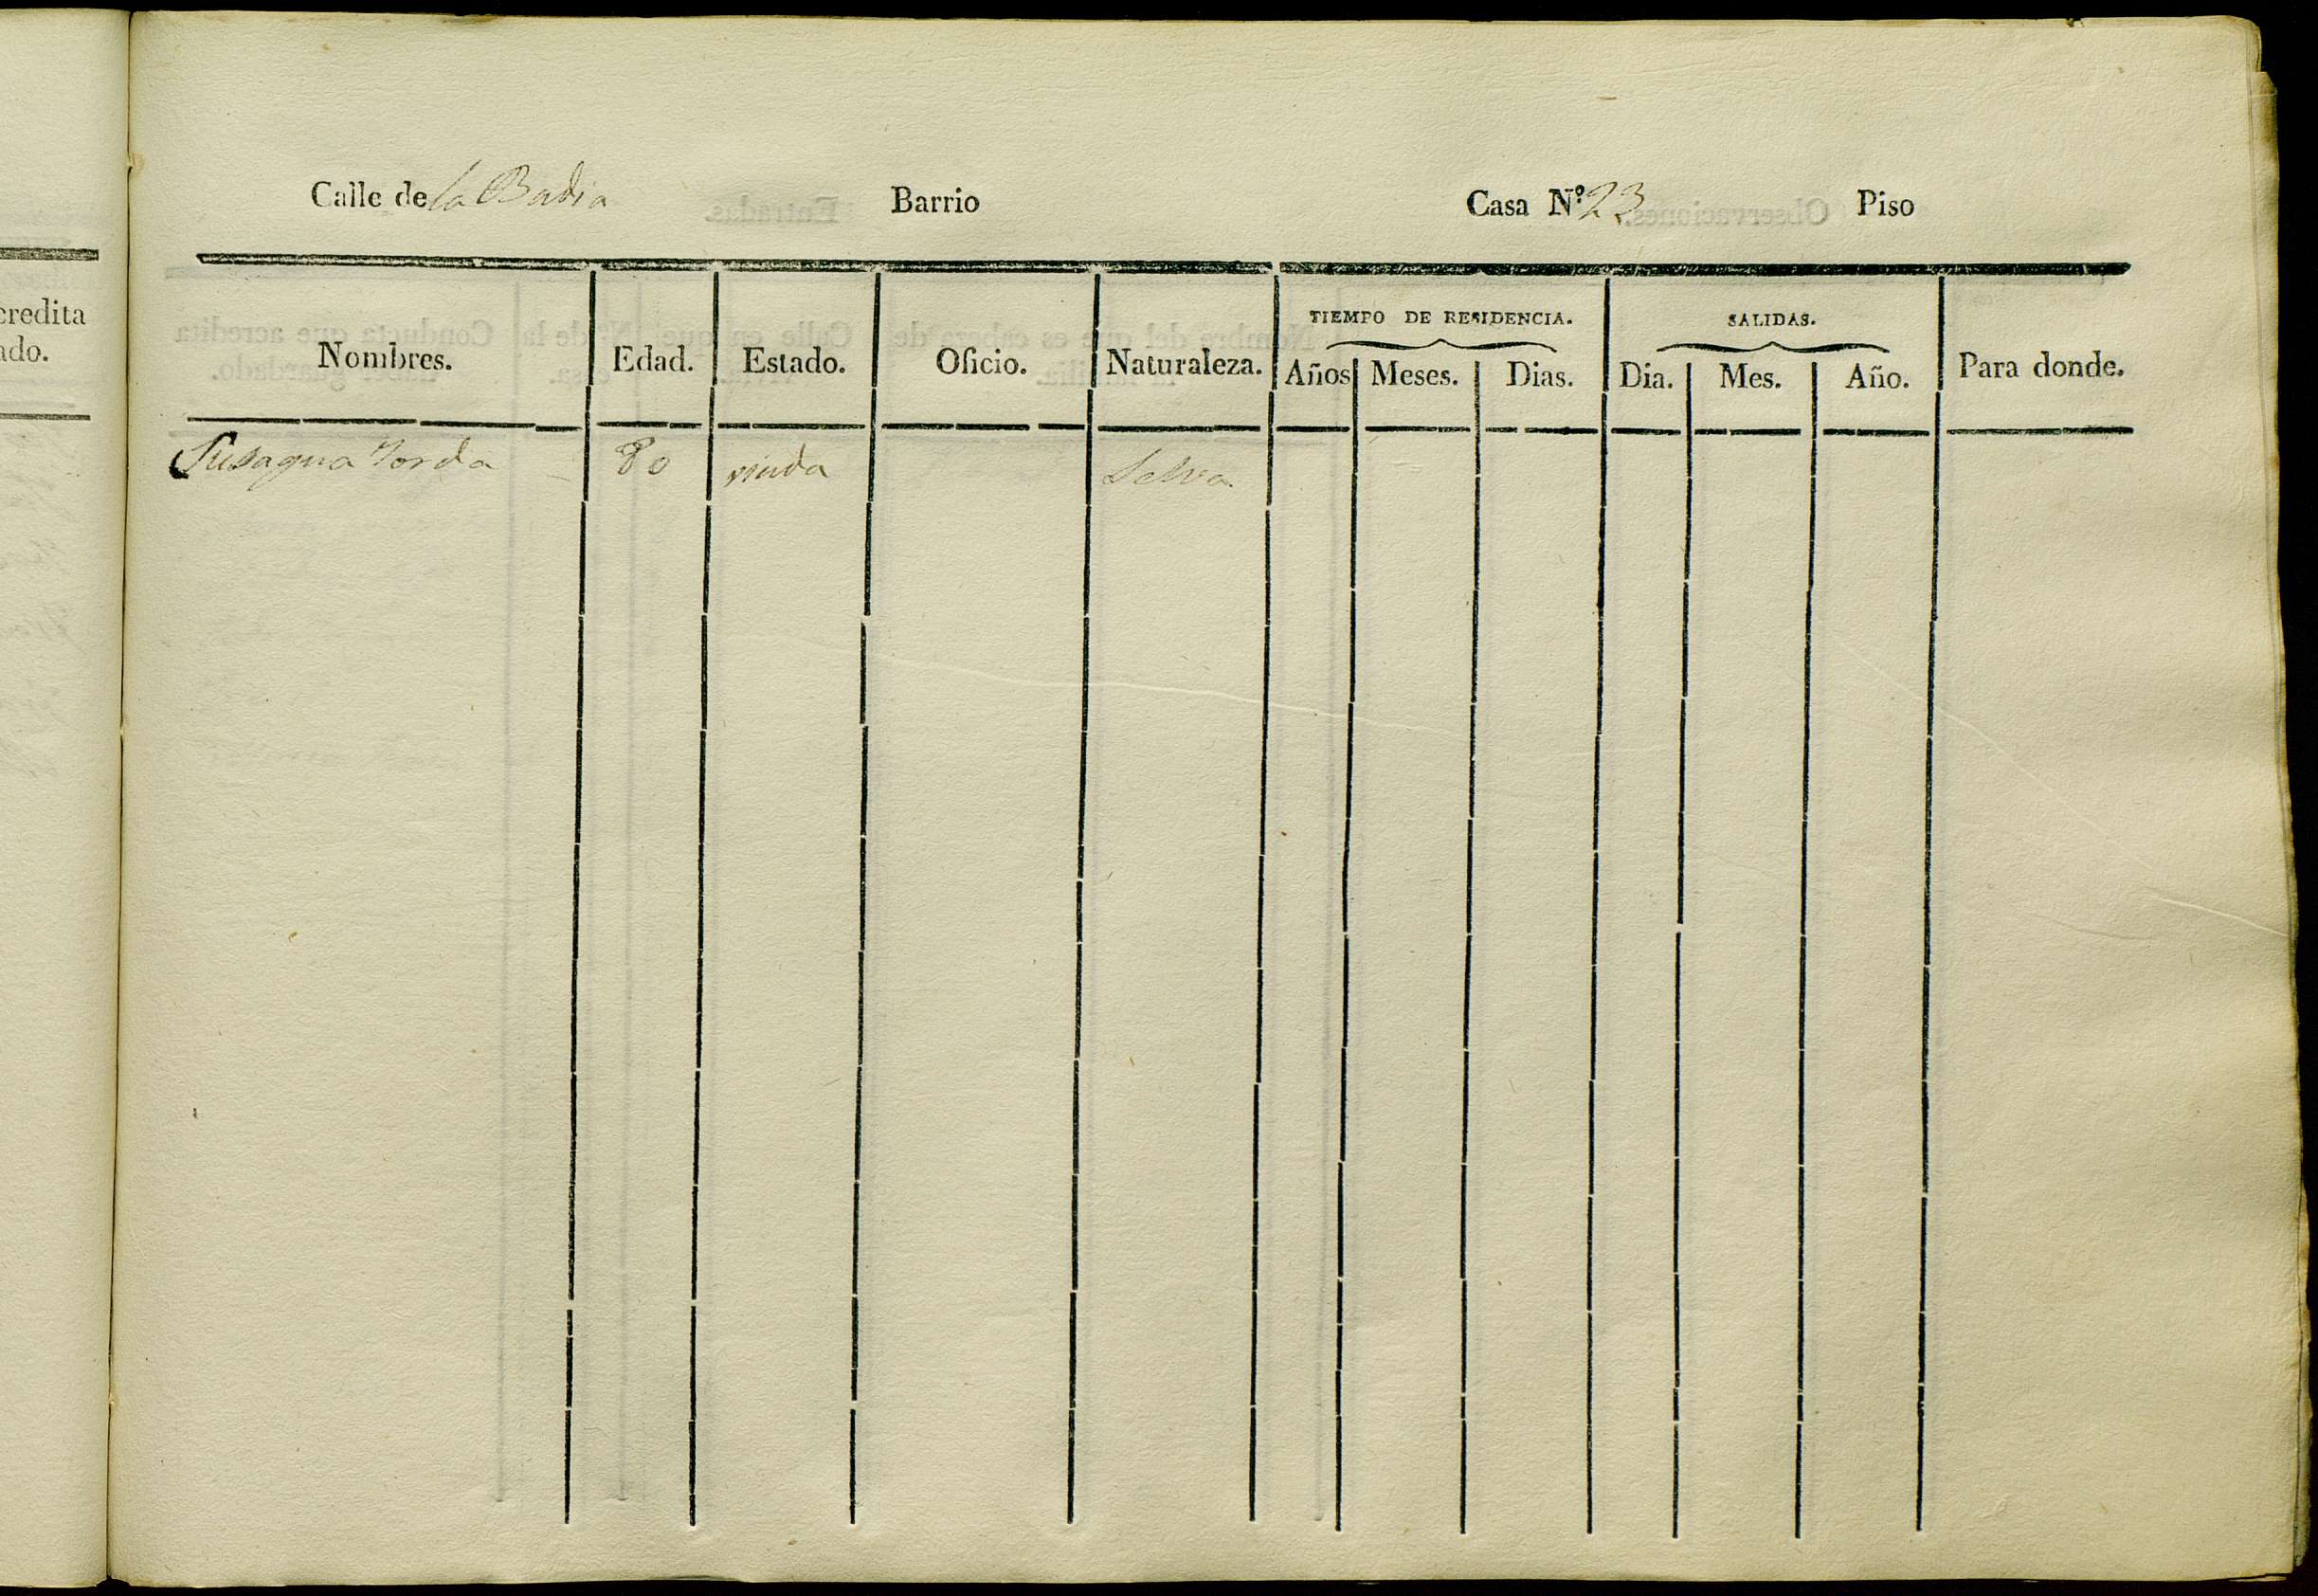 Calle de la Badia Barrio Casa Nº 23 Piso
credita
ado.
TIEMPO DE RESIDENCIA. SALIDAS.
Nombres. Edad. Estado. Oficio. Naturaleza. Años Meses. Dias. Dia. Mes. Año. Para donde.
80 viuda Selva